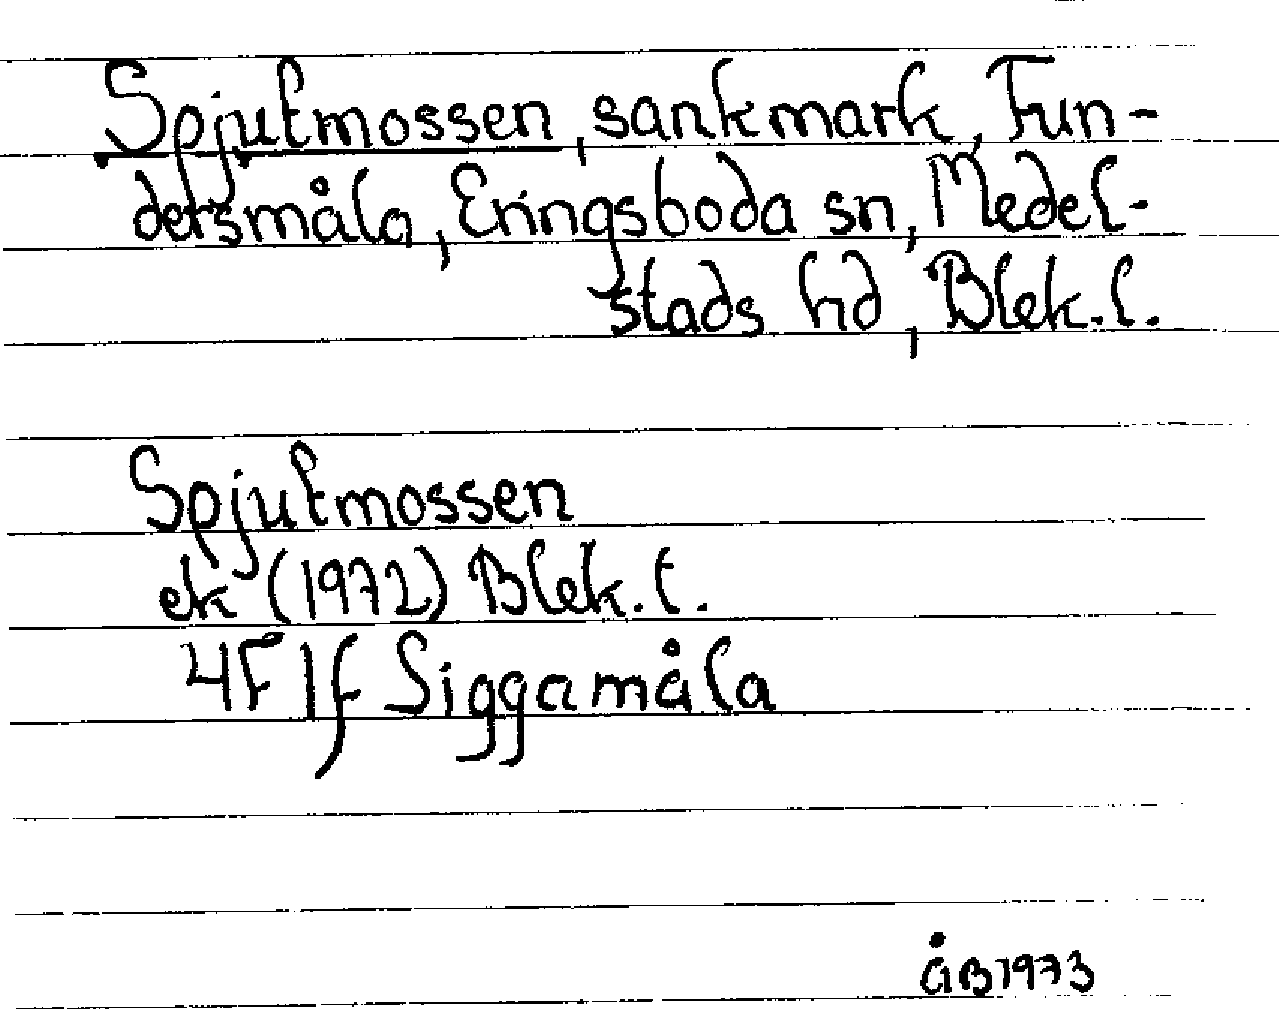 Spjutmossen, sankmark, Fun-
dersmåla, Eringsboda sn, Medel-
stads hd, Blek.l.
Spjutmossen
ek (1972) Blek.l.
4F 1f Siggamåla
ÅB 1973